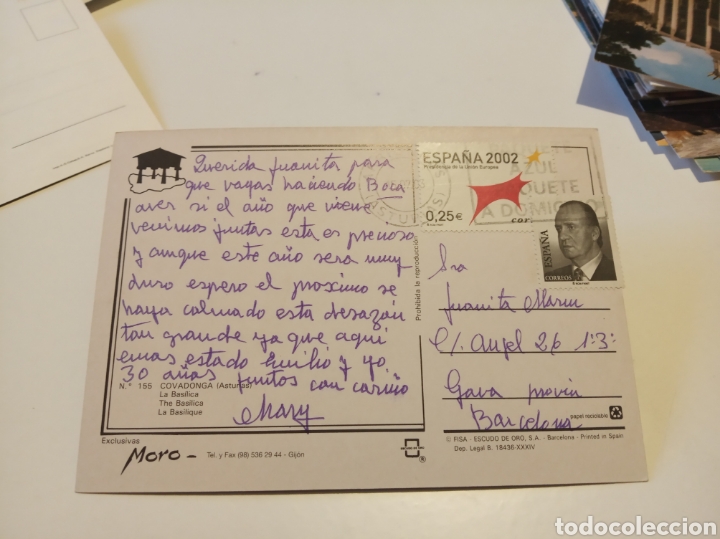 Querida Juanita para
que vayas haciendo Boca
aver si el año que viene
venimos juntas esta es precioso
y aunque este año sera muy
duro espero el proximo se
haya calmado esta desazón
tan grande ya que aqui
emos estado Emilio y yo
30 años juntos con cariño
Mary
N.° 155 COVADONGA (Asturias)
La Basílica
The Basilica
La Basilique
Exclusivas
Moro - Tel. y Fax (98) 536 29 44 - Gijón
Prohibida la reproducción
ESPAÑA 2002
Presidencia de la Unión Europea
0,25€
correos
AZUL
A DOMICILIO
ESPAÑA
CORREOS
Sra
Juanita
C/. Angel 26 1:3:
Gava provin
Barcelona
papel reciclable
© FISA - ESCUDO DE ORO, S.A. - Barcelona - Printed in Spain
Dep. Legal B. 18436-XXXIV
todocoleccion